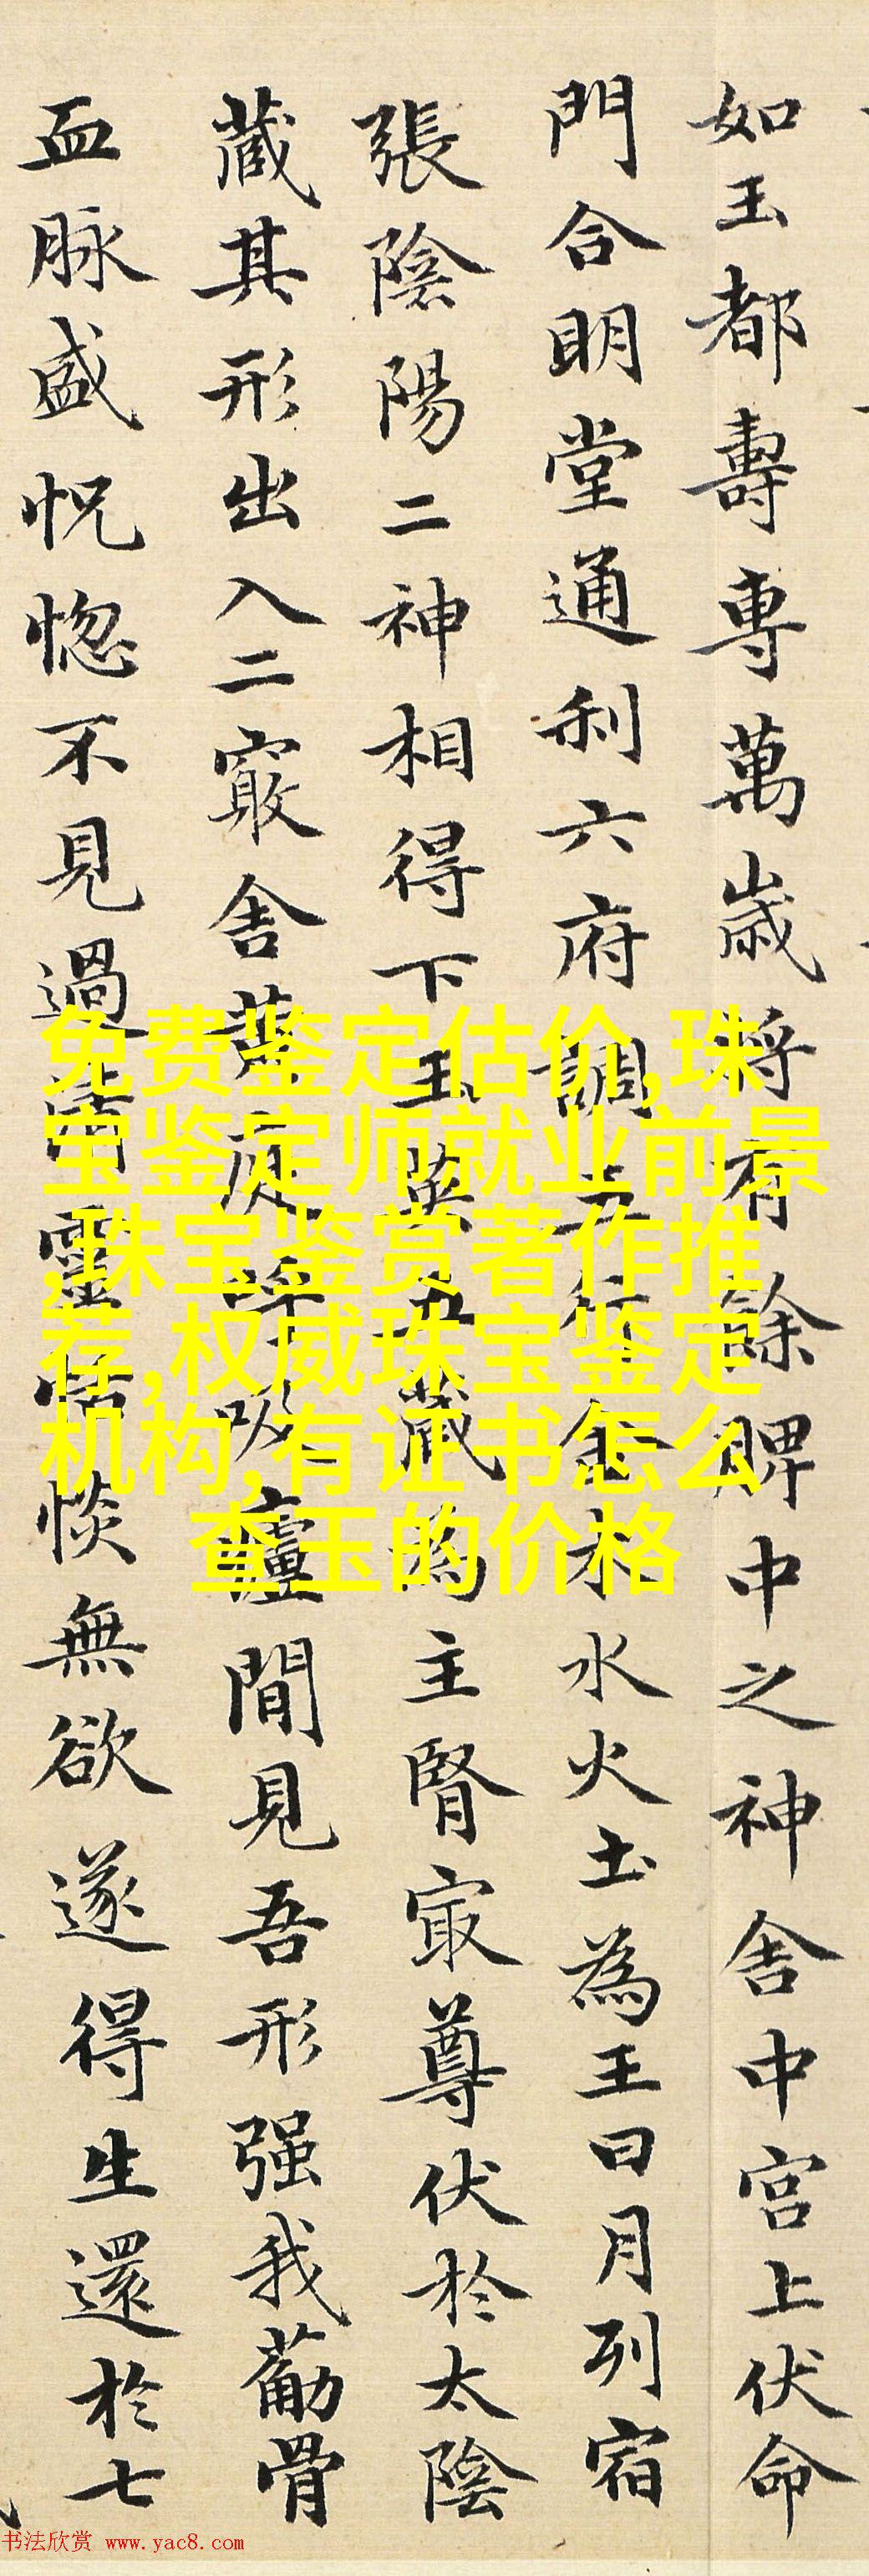 如玉都壽專萬歲将有餘脾中之神舍中宫上伏命
門合明堂通利六府調五行金木水火土為王日月列宿
張陰陽二神相得下玉英五藏為主腎最尊伏於太陰
藏其形出入二竅舍黄庭呼吸廬間見吾形强我筋骨
血脉盛怳惚不見過清靈恬惔無欲遂得生還於七
免费鉴定估价,珠
宝鉴定师就业前景
,珠宝鉴赏著作推
荐,权威珠宝鉴定
机构,有证书怎么
查玉的价格
书法欣赏 www.yac8.com